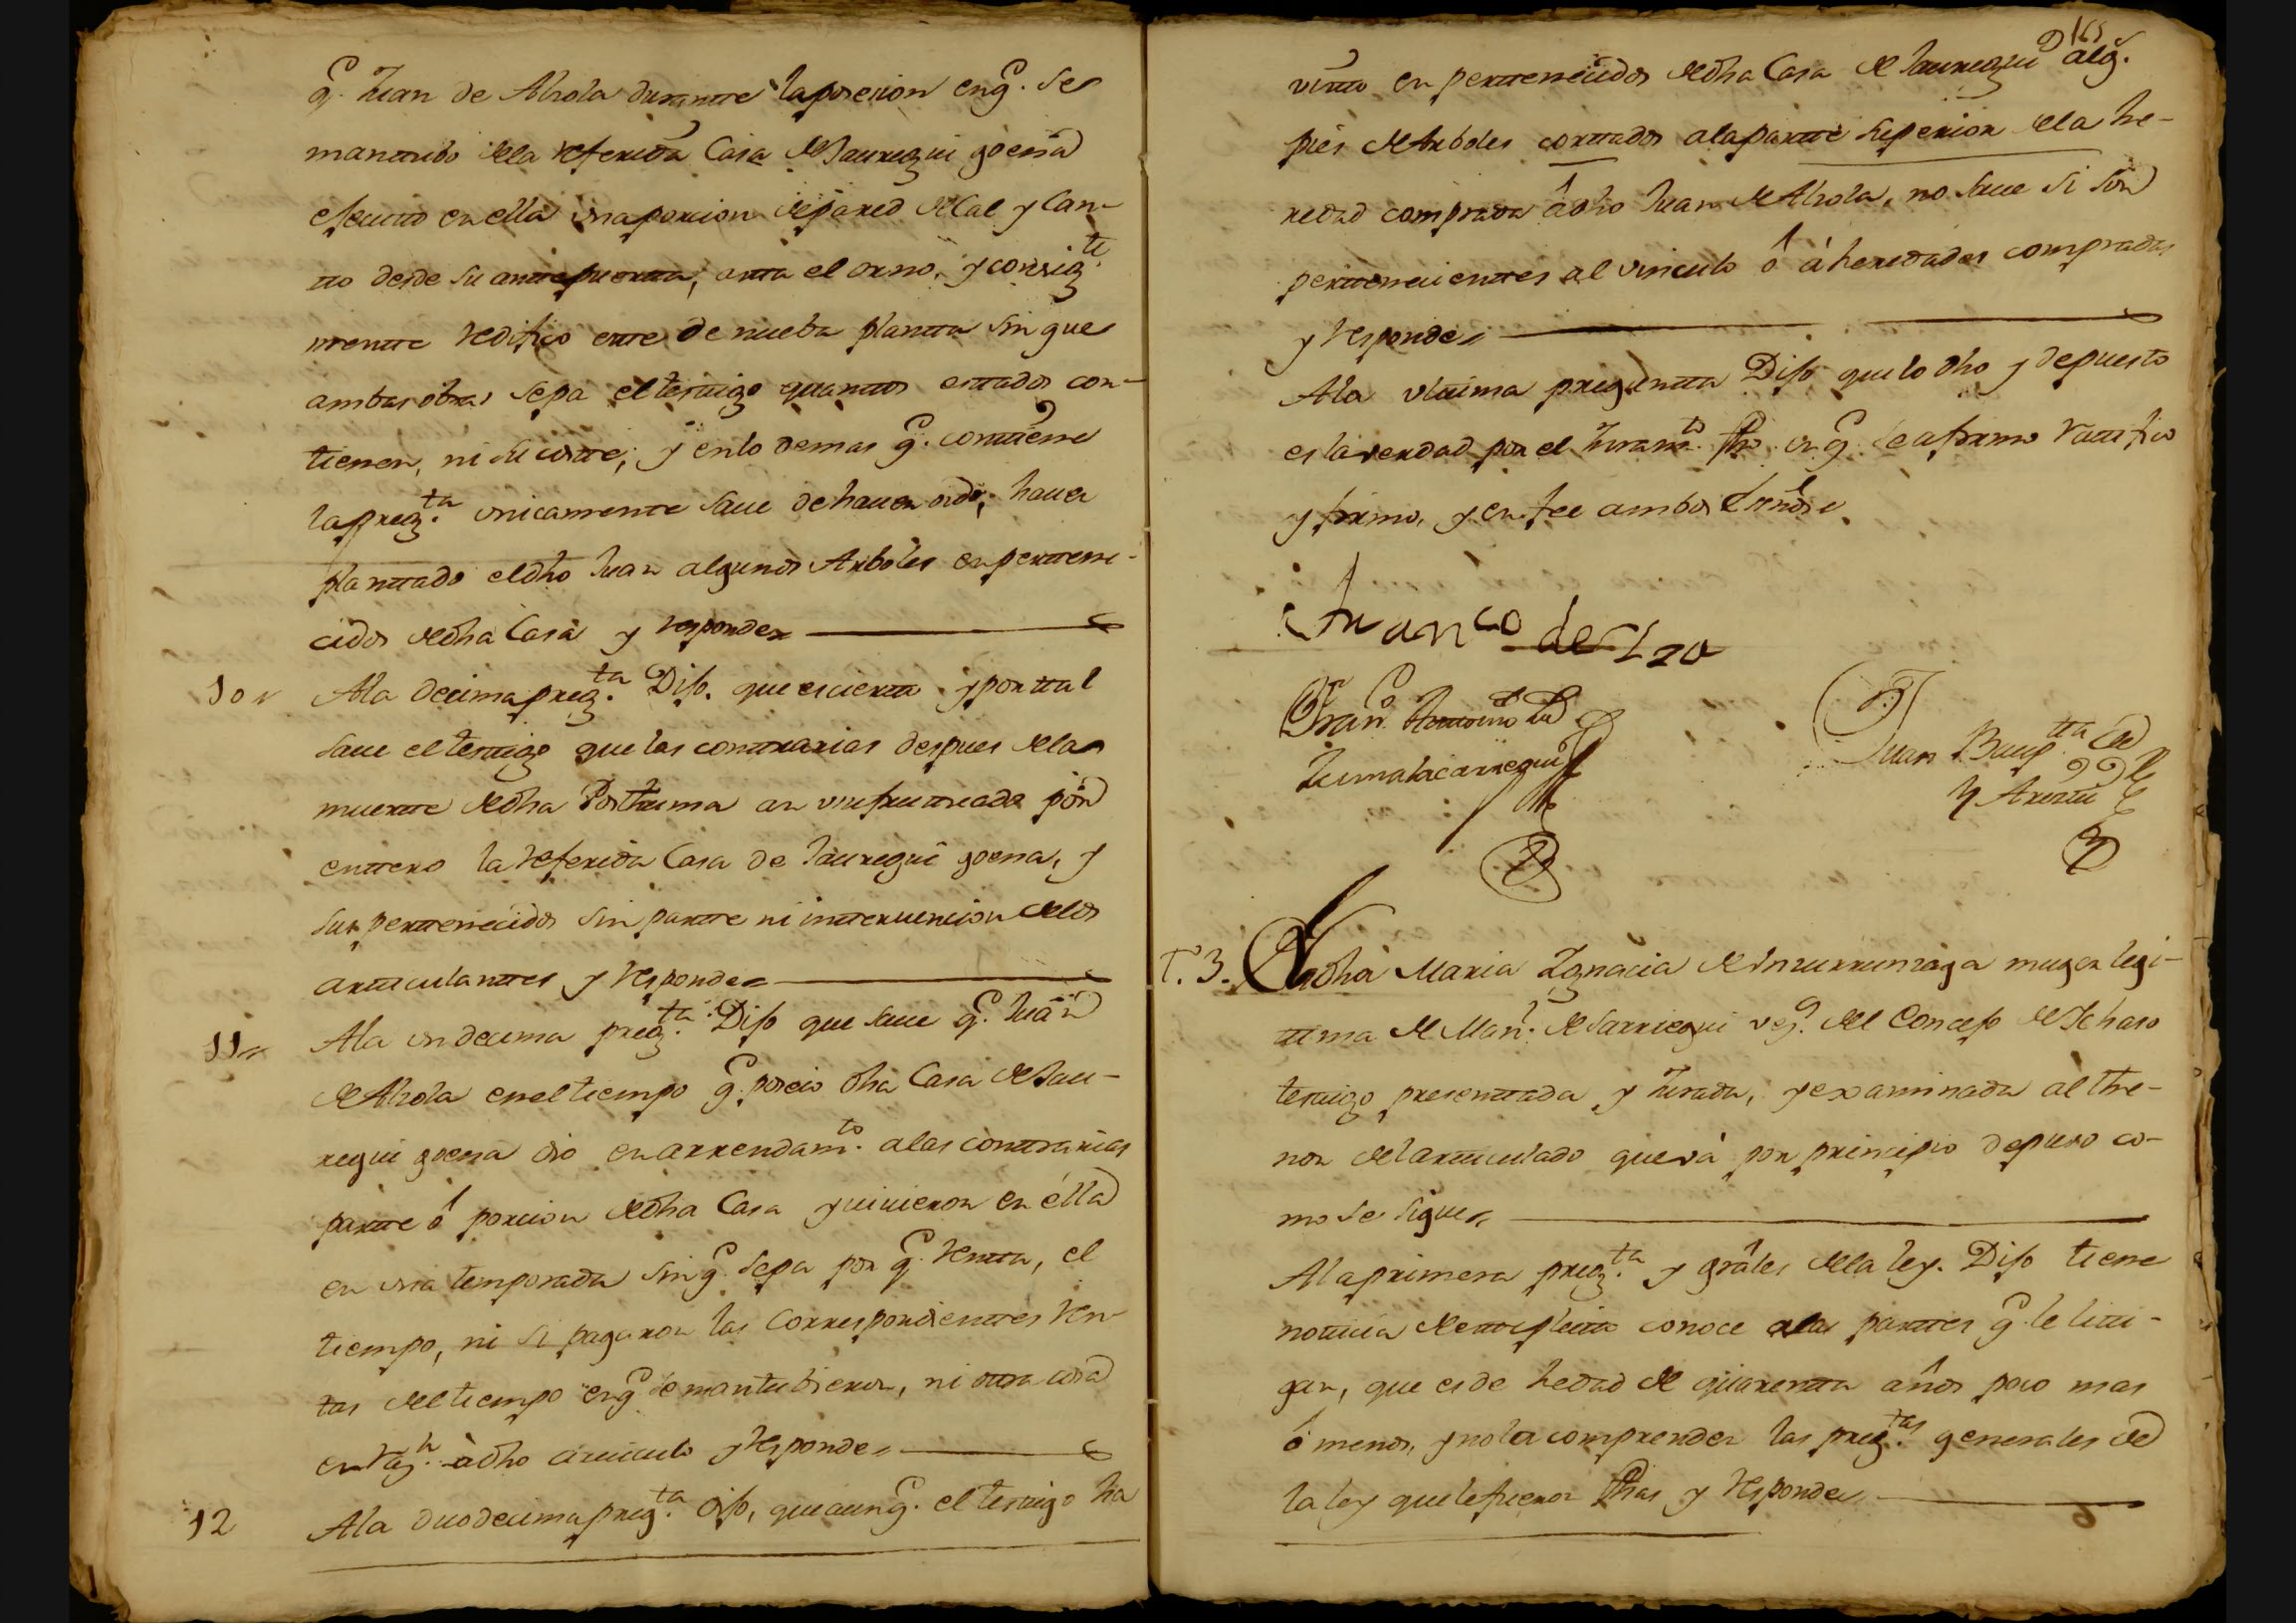 q.e Juan de Alzola durante la posesion en q.e se
mantubo de la referida Casa de Jauregui goena
ejecuto en ella una porcion de pared de Cal y Can-
tto desde su antepuertta, asta el orno, y consig.te
mentte redifico este de nueba plantta sin que
ambas obras sepa el testigo quanttos estados con-
tienen, ni su costte; y en lo demas q.e conttiene
la preg.ta unicamente save de haver oido, haver
planttado el dho Juan algunos Arboles en pertene-
cidos de dha Casa y responde
10 Ala decima preg.ta Dijo que es cierta y por ttal
save el testigo que las conttrarias despues de la
muertte de dha Posthuma an usufructtuado por
enttero la referida Casa de Jauregui goena, y
sus perttenecidos sin partte ni inttervencion de los
articulanttes y responde
11 Ala undecima preg.ta Dijo que save q.e Juan
de Alzola en el tiempo q.e poseio dha Casa de Jau-
regui goena dio en arrendam.to a las conttrarias
partte ó porcion de dha Casa y vivieron en élla
en una temporada sin q.e sepa por q.e rentta, el
tiempo, ni si pagaron las Correspondienttes Ren-
tas del tiempo en q.e se mantubieron, ni ottra cosa
en raz.n à dho articulo y responde
12 Ala duodecima preg.ta dijo, que aunq.e el testigo ha
165
visto en perttenecidos de dha Casa de Jauregui alg.s
pies de Arboles corttados a la partte superior de la he-
redad comprada â dho Juan de Alzola, no save si son
perttenecienttes al vinculo ô à heredades compradas
y responde
Ala ultima preguntta Dijo que lo dho y depuesto
es la verdad por el Juram.to fho en q.e se afirmo rattifico
y firmo, y en fee ambos
Juan
Fran.co Antonio de
Zumalacarregui
Juan Bap.tta de
y
T. 3. La dha Maria Ignacia de Inzurrunzaga muger legi-
ttima de Man.l de Sarriegui vez.o del Concejo de Ichaso
testigo presenttada y Jurada, y examinada al the-
nor del articulado que và por principio depuso co-
mo se sigue
Ala primera preg.ta y grâles de la ley. Dijo tiene
notticia de este pleitto conoce a las parttes q.e le litti-
gan, que es de hedad de quarentta años poco mas
ó menos, y no la comprenden las preg.tas generales de
la ley que le fueron fhas y responde